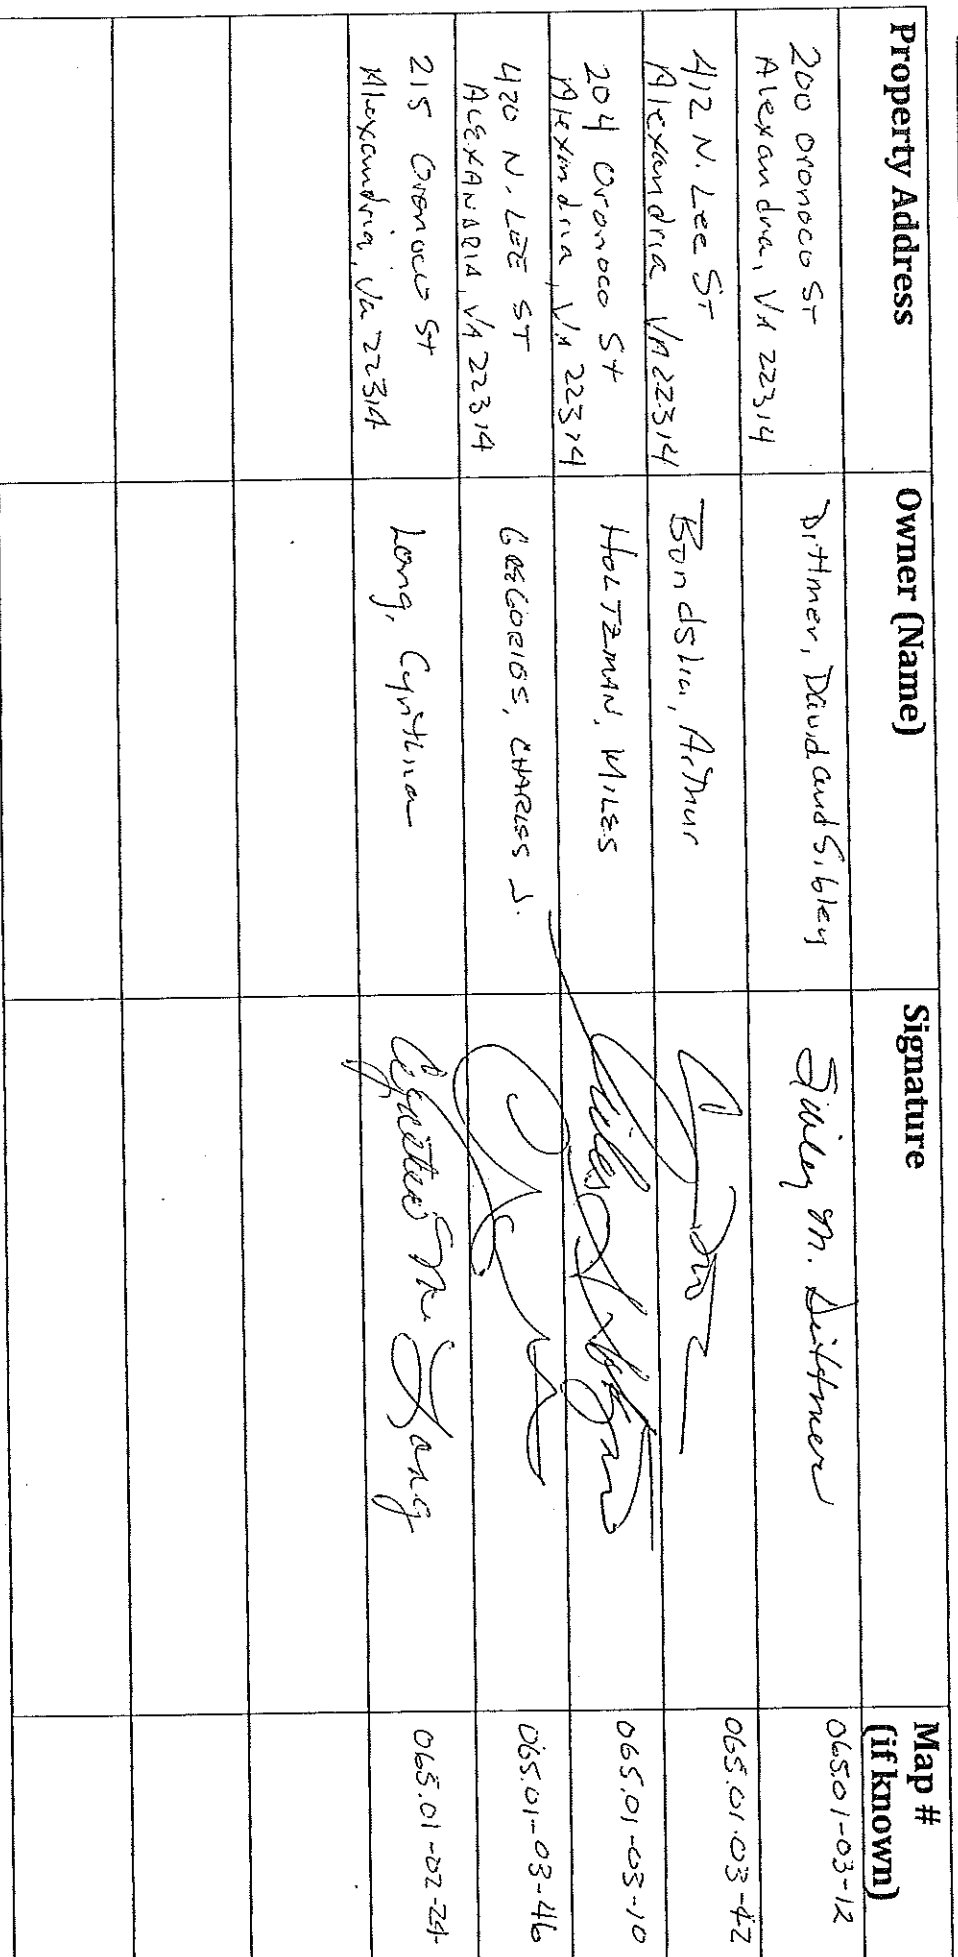 Property Address
Owner (Name)
Signature
Map #
(if known)
200 Oronoco ST
Alexandria, VA 22314
Dittmer, David and Sibley
Sibley M. Dittmer
065.01-03-12
412 N. Lee ST
Alexandria VA 22314
Arthur
065.01.03-42
204 Oronoco St
Alexandria, VA 22314
HOLTZMAN, MILES
Miles
065.01-03-10
420 N. LEE ST
ALEXANDRIA, VA 22314
GREGORIOS, CHARLES J.
065.01-03-46
215 Oronoco St
Alexandria, Va 22314
Long, Cynthia
Cynthia M. Long
065.01-02-24